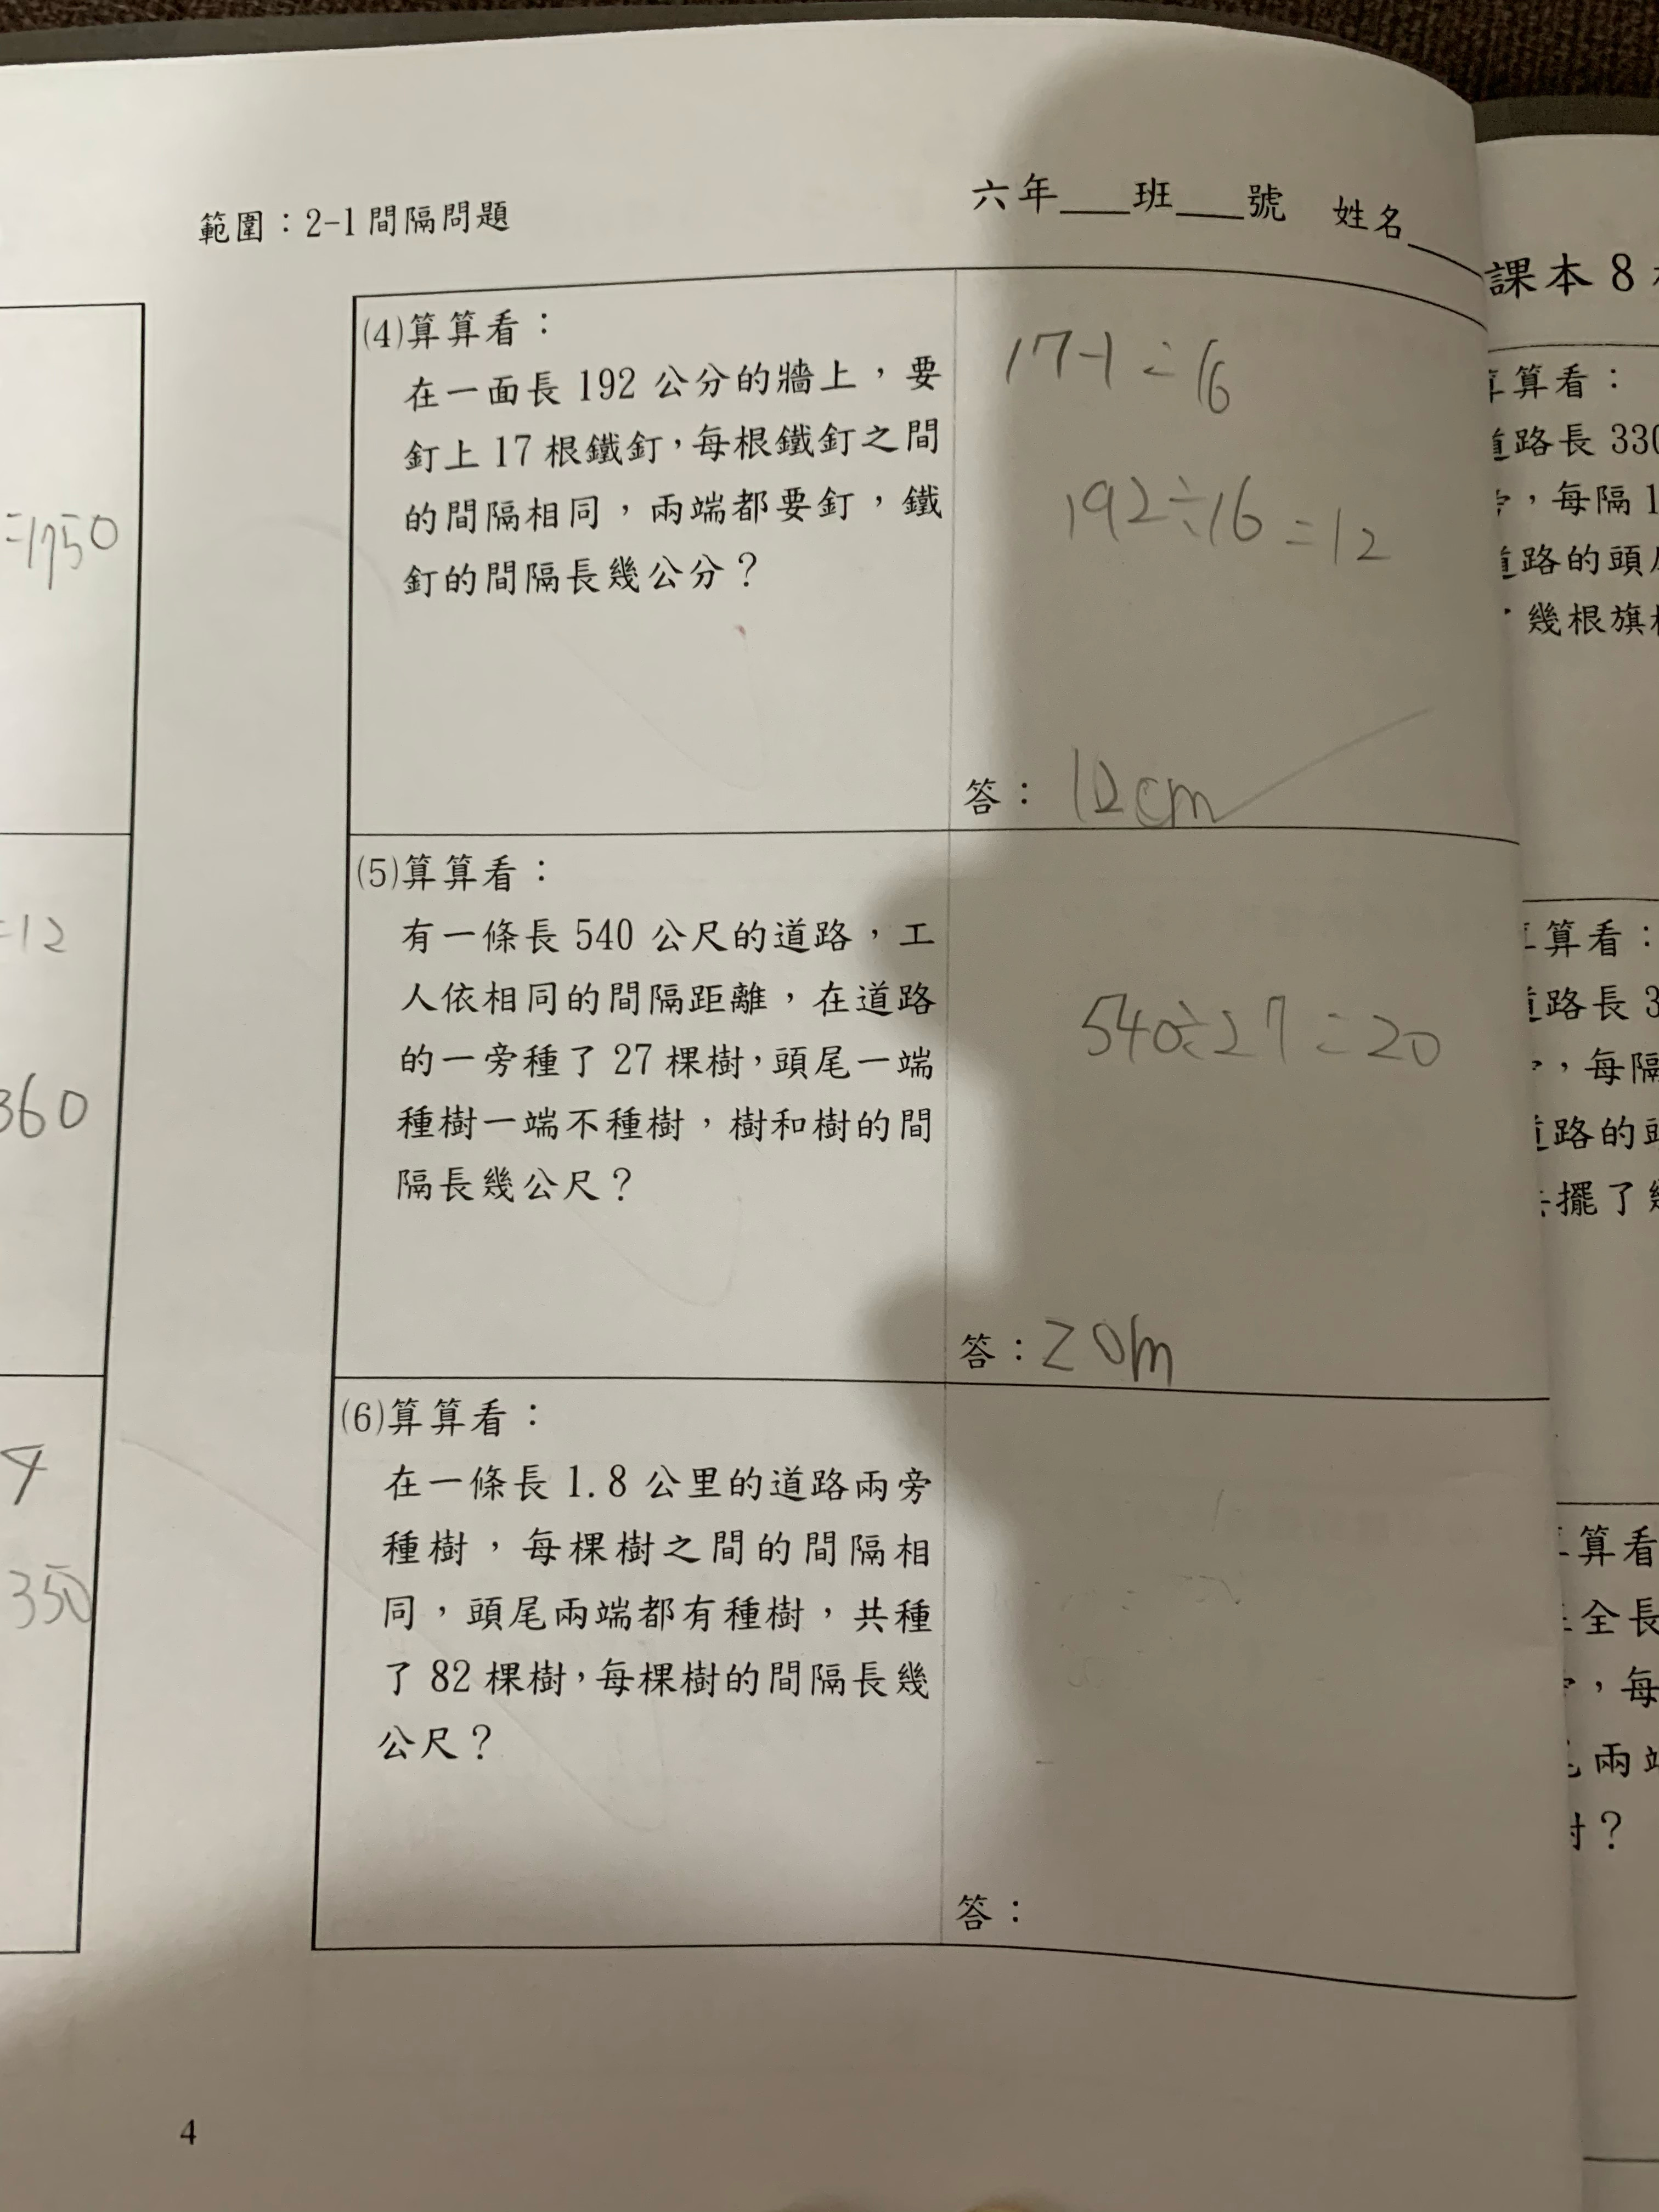 範圍：2-1間隔問題
六年___班___號 姓名___
=1750
=12
360
350
(4)算算看：
在一面長 192 公分的牆上，要
釘上 17 根鐵釘，每根鐵釘之間
的間隔相同，兩端都要釘，鐵
釘的間隔長幾公分？
17-1=16
192÷16=12
答：12cm
(5)算算看：
有一條長 540 公尺的道路，工
人依相同的間隔距離，在道路
的一旁種了 27 棵樹，頭尾一端
種樹一端不種樹，樹和樹的間
隔長幾公尺？
540÷27=20
答：20m
(6)算算看：
在一條長 1.8 公里的道路兩旁
種樹，每棵樹之間的間隔相
同，頭尾兩端都有種樹，共種
了 82 棵樹，每棵樹的間隔長幾
公尺？
答：
4
課本 8
算看：
道路長 330
，每隔 1
道路的頭
幾根旗
算看：
道路長 3
，每隔
道路的
擺了
算看
全長
，每
兩
？